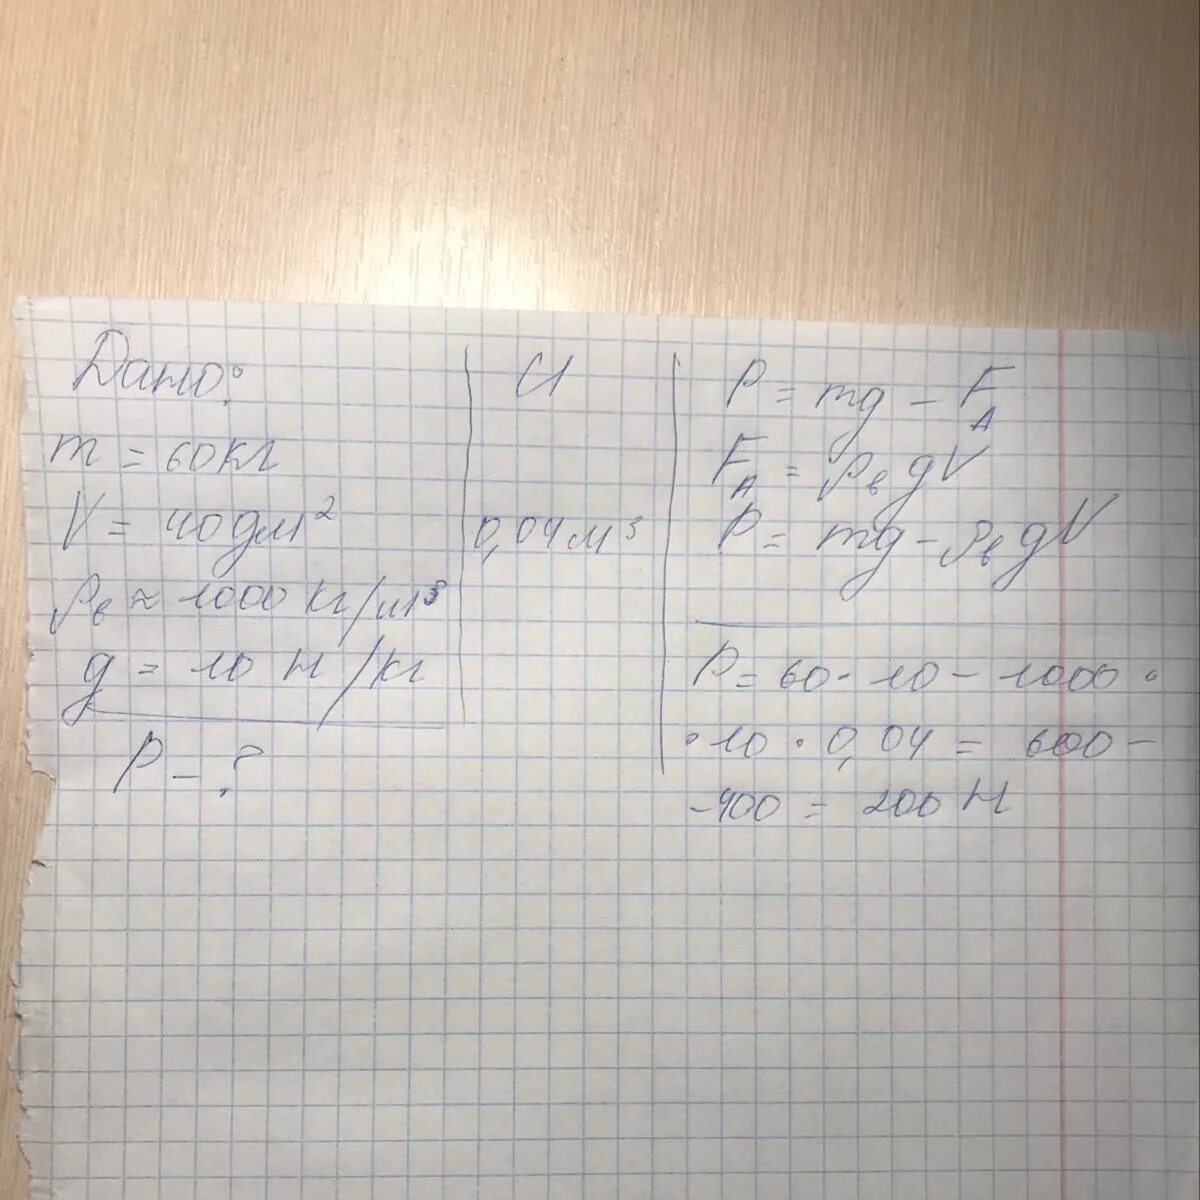 Дано:
m = 60кг
V = 40дм²
ρв ≈ 1000 кг/м³
g = 10 Н/кг
P - ?
СИ
0,04м³
P = mg - FА
FА = ρв gV
P = mg - ρв gV
P = 60 · 10 - 1000 ·
· 10 · 0,04 = 600 -
- 400 = 200 Н